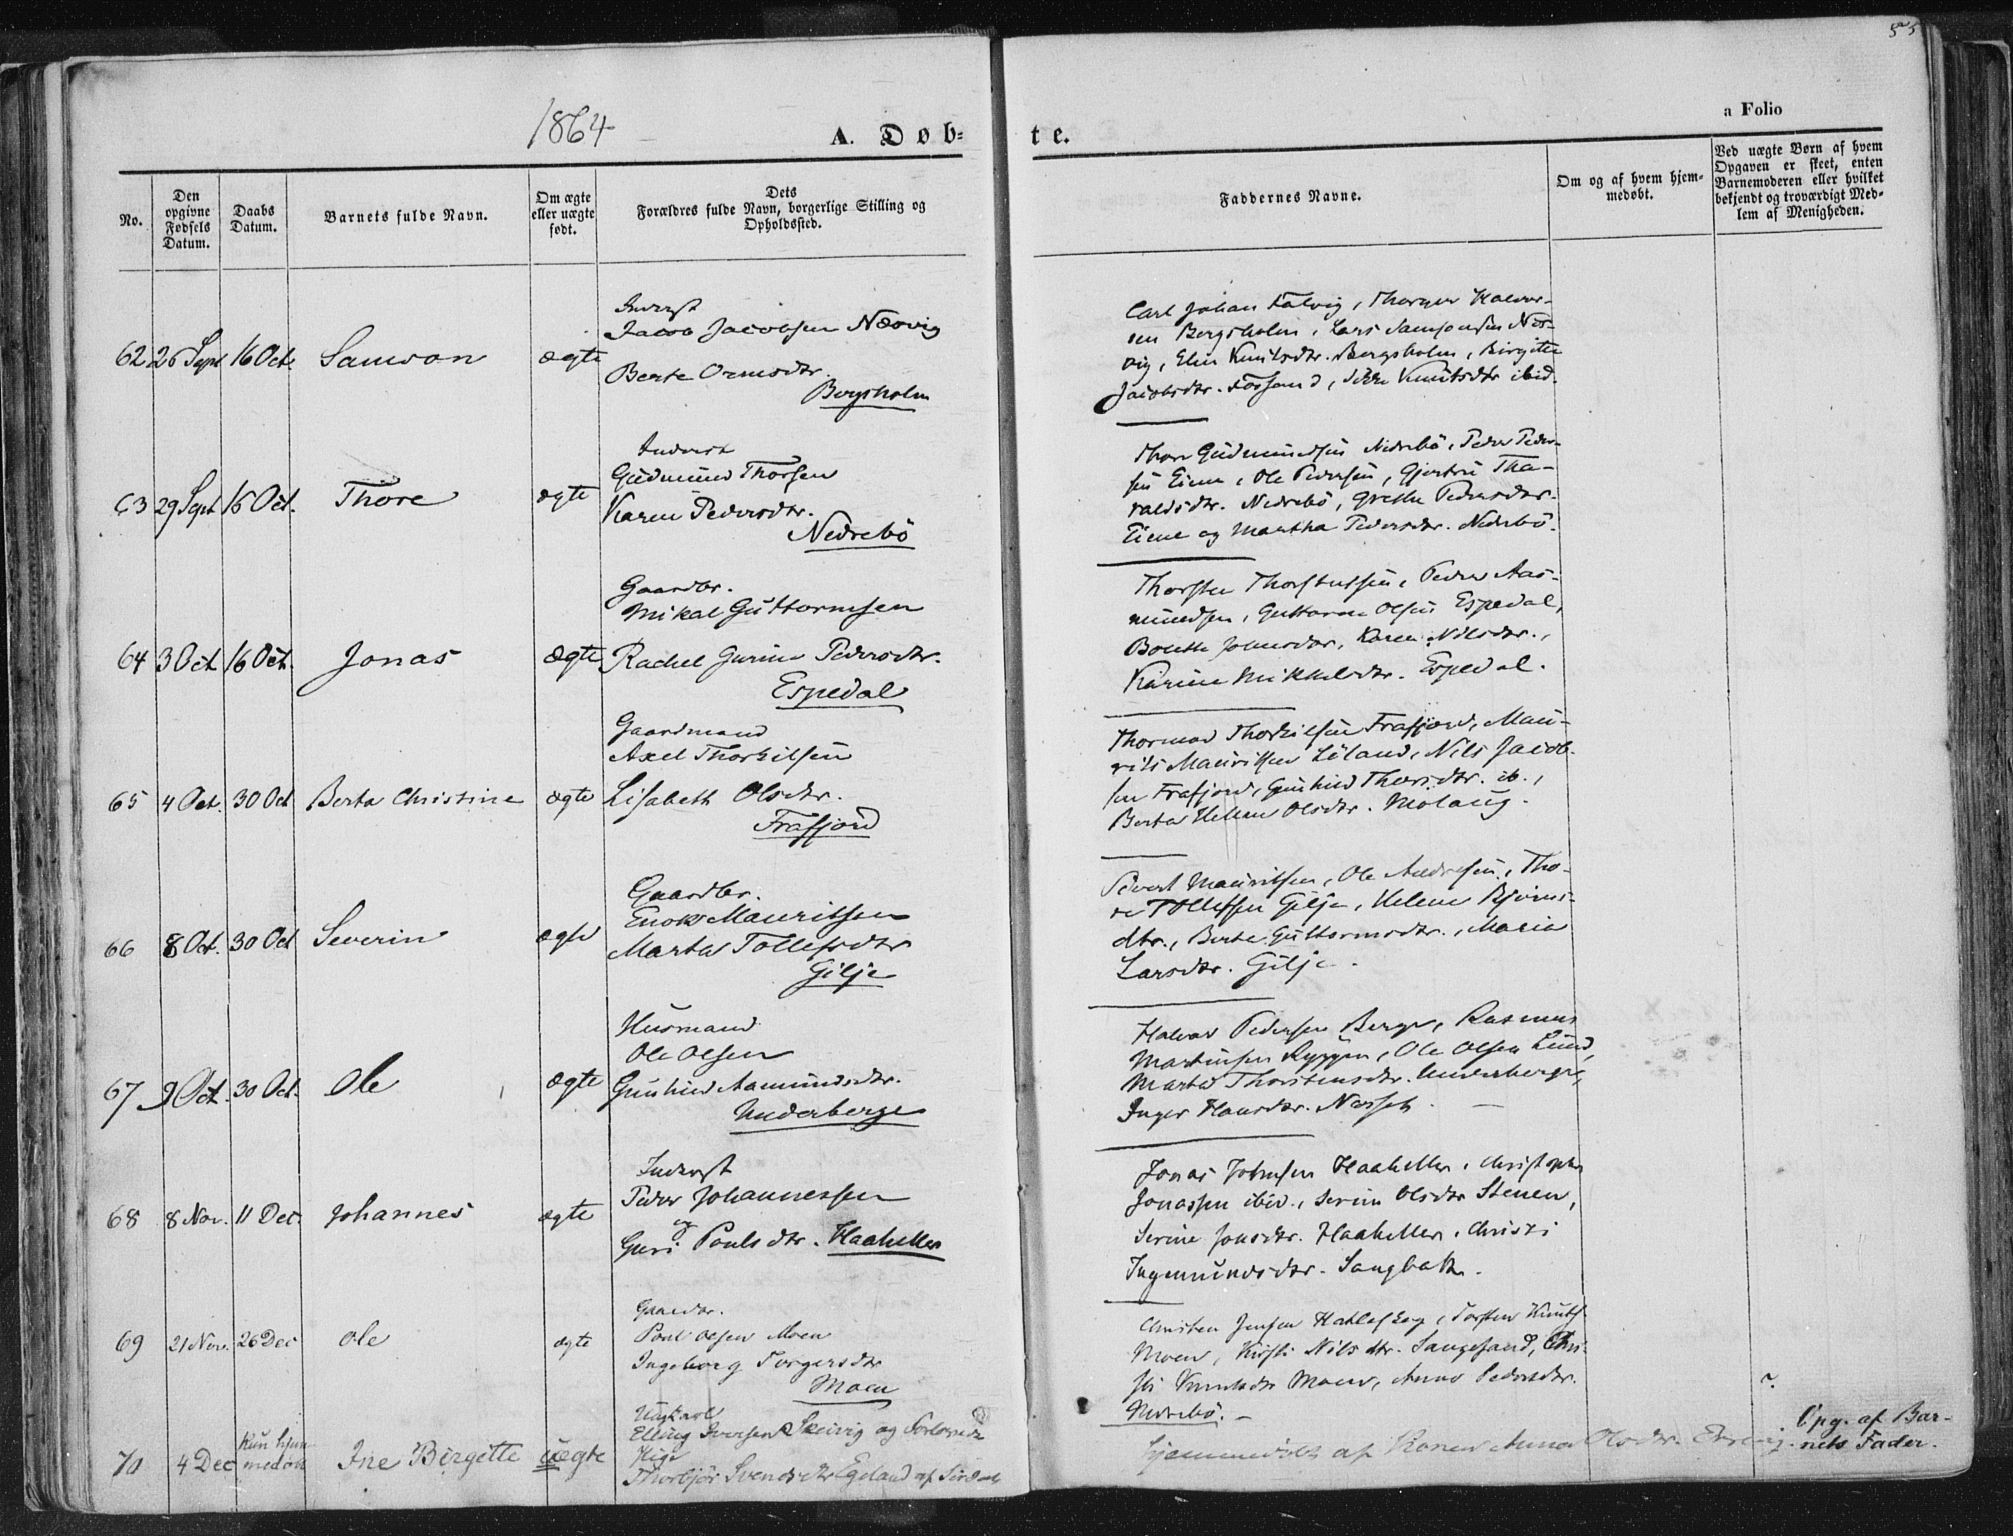 55
1864
A. Døb=
te.
a Folio
No.
Den opgivne Fødsels Datum.
Daabs Datum.
Barnets fulde Navn.
Om ægte eller uægte født.
Dets
Forældres fulde Navn, borgerlige Stilling og
Opholdssted.
Faddernes Navne.
Om og af hvem hjem-
medøbt.
Ved uægte Børn af hvem
Opgaven er skeet, enten
Barnemoderen eller hvilket
bekjendt og troværdigt Med-
lem af Menigheden.
62 26 Sept 16 Oct. Samson ægte
Inderst
Jacob Jacobsen Næsvig
Berte Ormsdtr.
Bergsholm
Carl Johan Talvig, Halvor-
sen Bergsholm, Lars Samsonsen Næs-
vig, Elen Knutsdtr. Bergsholm, Birgitte
Jacobsdtr. Fossand, Knutsdtr ibid.
63 29 Sept 16 Oct. Thore ægte
Inderst
Gudmund Thorsen
Karen Pedersdtr.
Nedrebö
Thore Gudmundsen Nedrebö, Peder Peder-
sen Eiene, Ole Pedersen, Gjertru Tha-
raldsdtr. Nedrebö, Grethe Pedersdtr.
Eiene og Martha Pedersdtr. Nedrebö.
64 3 Oct 16 Oct. Jonas ægte
Gaardbr.
Mikal Guttormsen
Rachel Gurine Pedersdtr.
Espedal
Thorsten Thorstensen, Peder Aas-
mundsen, Guttorm Olsen Espedal,
Johnsdtr, Karen Nilsdtr.,
Karine Mikkelsdtr. Espedal.
65 4 Oct. 30 Oct Berta Christine ægte
Gaardmand
Axel Thorkilsen
Lisabeth Olsdtr.
Frafjord
Thormod Thorkilsen Frafjord, Mau-
rits Mauritsen Löland, Nils Jacob-
sen Frafjord, Gunhild Thorsdtr. ib.,
Berta Helene Olsdtr. Molaug.
66 8 Oct. 30 Oct Severin ægte
Gaardbr.
Enok Mauritsen
Marta Tollefsdtr
Gilje
Sivert Mauritsen, Ole Andresen, Tho-
re Tollefsen Gilje, Helene Bjørns-
dtr., Berte Guttormsdtr., Maria
Larsdtr. Gilje.
67 9 Oct. 30 Oct. Ole ægte
Husmand
Ole Olsen
Gunhild Aamundsdtr.
Underberge
Halvor Pedersen Berge, Rasmus
Martinsen Ryggen, Ole Olsen Lund,
Marta Thorstensdtr. Underberge,
Inger Hansdtr. Nesset. —
68 8 Nov. 11 Dec. Johannes ægte
Inderst
Peder Johannessen
og
Guri Poulsdtr. Haaheller
Jonas Johnsen Haaheller, Christopher
Jonassen ibid., Serine Olsdtr Stenen,
Serine Jonsdtr. Haaheller, Christi
Ingemundsdtr. Sangbakk.
69 21 Nov. 26 Dec Ole ægte
Gaardbr.
Poul Olsen Moen
Ingeborg Torgersdtr
Moen
Christen Jensen Hatleskog, Torsten Knuts.
Moen, Kirsti Nilsdtr. Sangesand, Chri-
sti Knutsdtr Moen, Anna Pedersdtr.
Nedrebö. —
70 4 Dec Kun hjem-
medöbt Ine Birgitte uægte
Ungkarl
Elling Iversen Skeivig og
Pige
Thorbjör Svendsdtr Egeland af Sirdal
Hjemmedöbt af Konen Anna Olsdtr.
Opg. af Bar-
nets Fader.